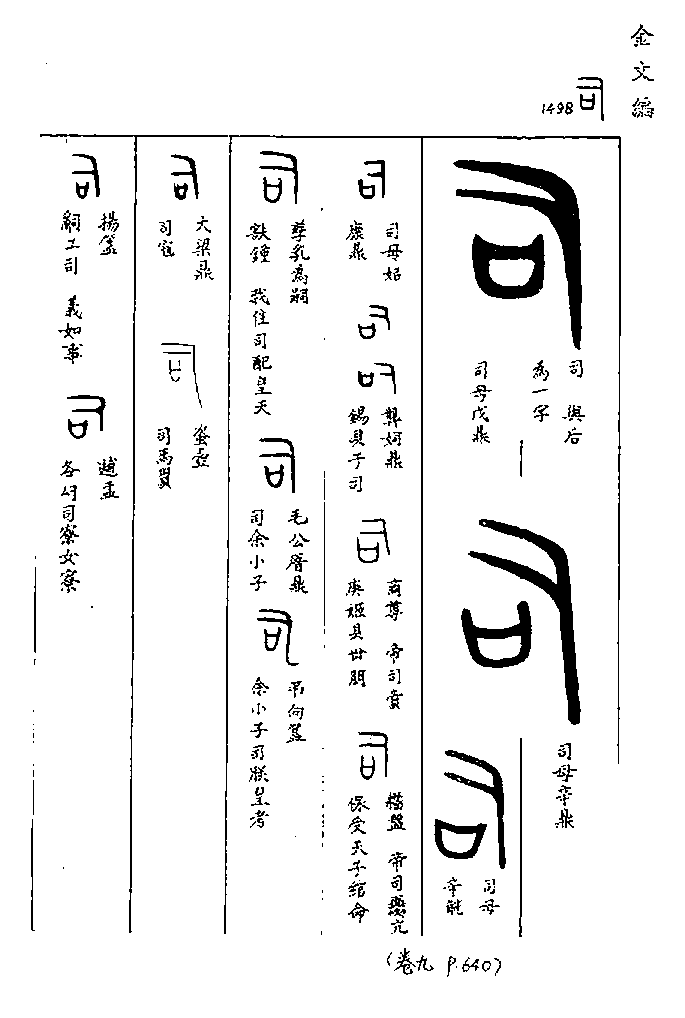 金文編
1498 司
司 與后
為一字
司母戊鼎
司母辛鼎
司母
辛
司母姒
康鼎
龏姛鼎
錫貝于司
商尊 帝司賞
庚姬貝卅朋
牆盤 帝司
保受天子綰命
孳乳為嗣
㝬鐘 我隹司配皇天
毛公𢊁鼎
司余小子
弔向簋
余小子司朕皇考
大梁鼎
司寇
𧊒壺
司馬賙
揚簋
嗣工司 義如事
趞盂
各姛司寮女寮
(卷九 P.640)